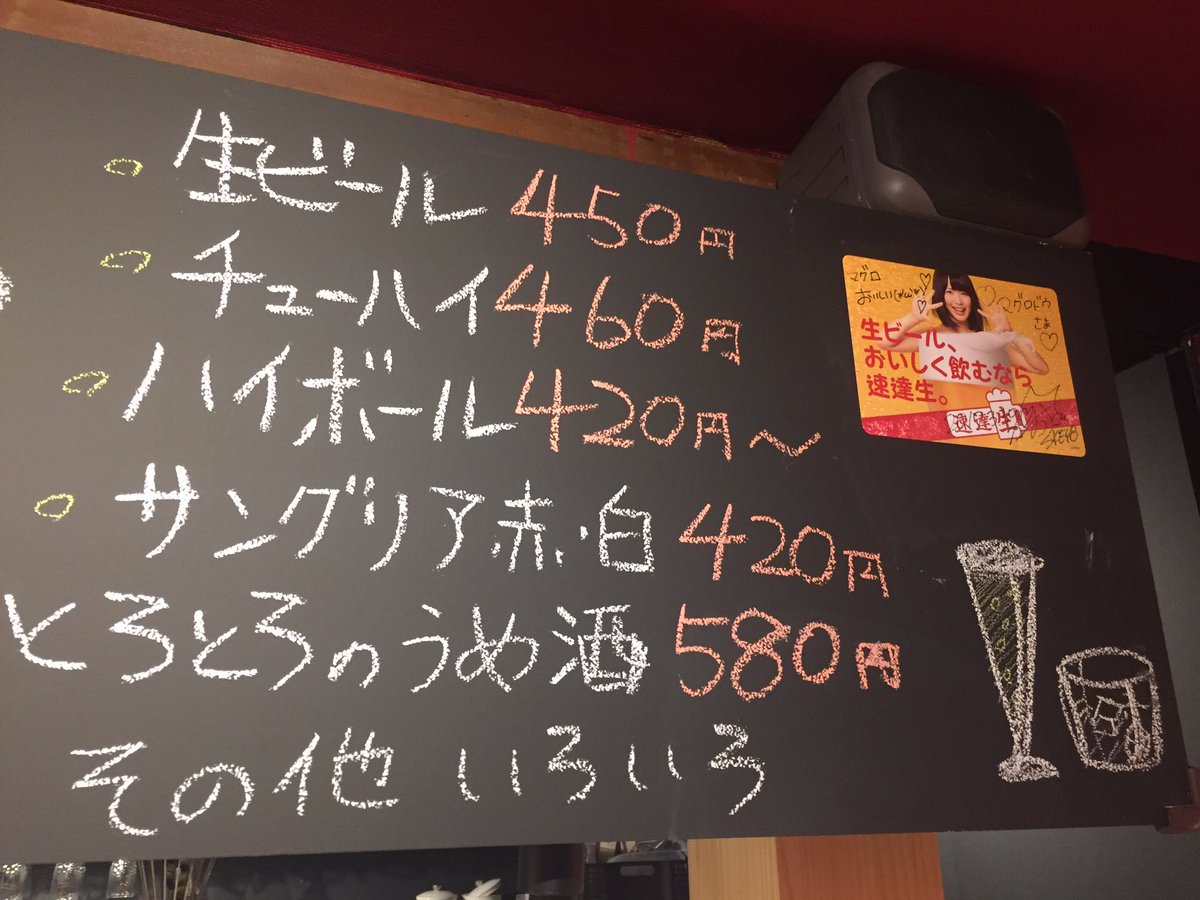 生ビール 450円
チューハイ 460円
ハイボール 420円〜
サングリア赤・白 420円
とろとろのうめ酒 580円
その他 いろいろ
マグロ
おいしい(*'ω'*)♡
マグロドウ
さま♡
生ビール、
おいしく飲むなら
速達生。
速達生!
SKE48